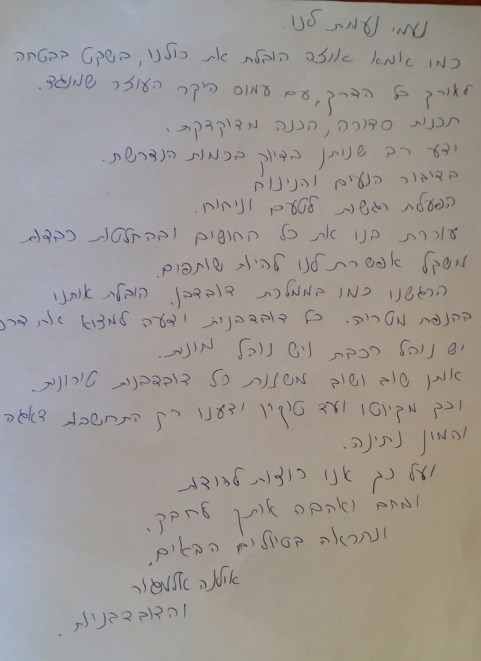 נעמי נעמת לנו.
כמו אמא אווזה הובלת את כולנו, בשקט בבטחה
לאורך כל הדרך, עם עמוס היקר העוזר שמנגד.
תכנית סדורה, הכנה מדוקדקת.
ידע רב שניתן בדיוק בכמות הנדרשת.
בדיבור הנעים והנינוח
הפעלת רגשות לטעם וניחוח.
עוררת בנו את כל החושים ובהחלטות כבדות
משקל אפשרת לנו להיות שותפים.
הרגשנו כמו בממלכת דובדבן. הובלת אותנו
בהנפת מטריה. כל דובדבנית ידעה למצוא את דרכ
יש נוהל רכבת ויש נוהל מונית.
אותן שוב ושוב משננת כל דובדבנית טירונית.
וכך מקיוטו ועד טוקיו ידענו רק התחשבות דאגה
והמון נתינה.
ועל כך אנו רוצות להודות
ומחם ואהבה אותך לחבק.
ונתראה בטיולים הבאים.
אילנה אלמגור
והדובדבניות.